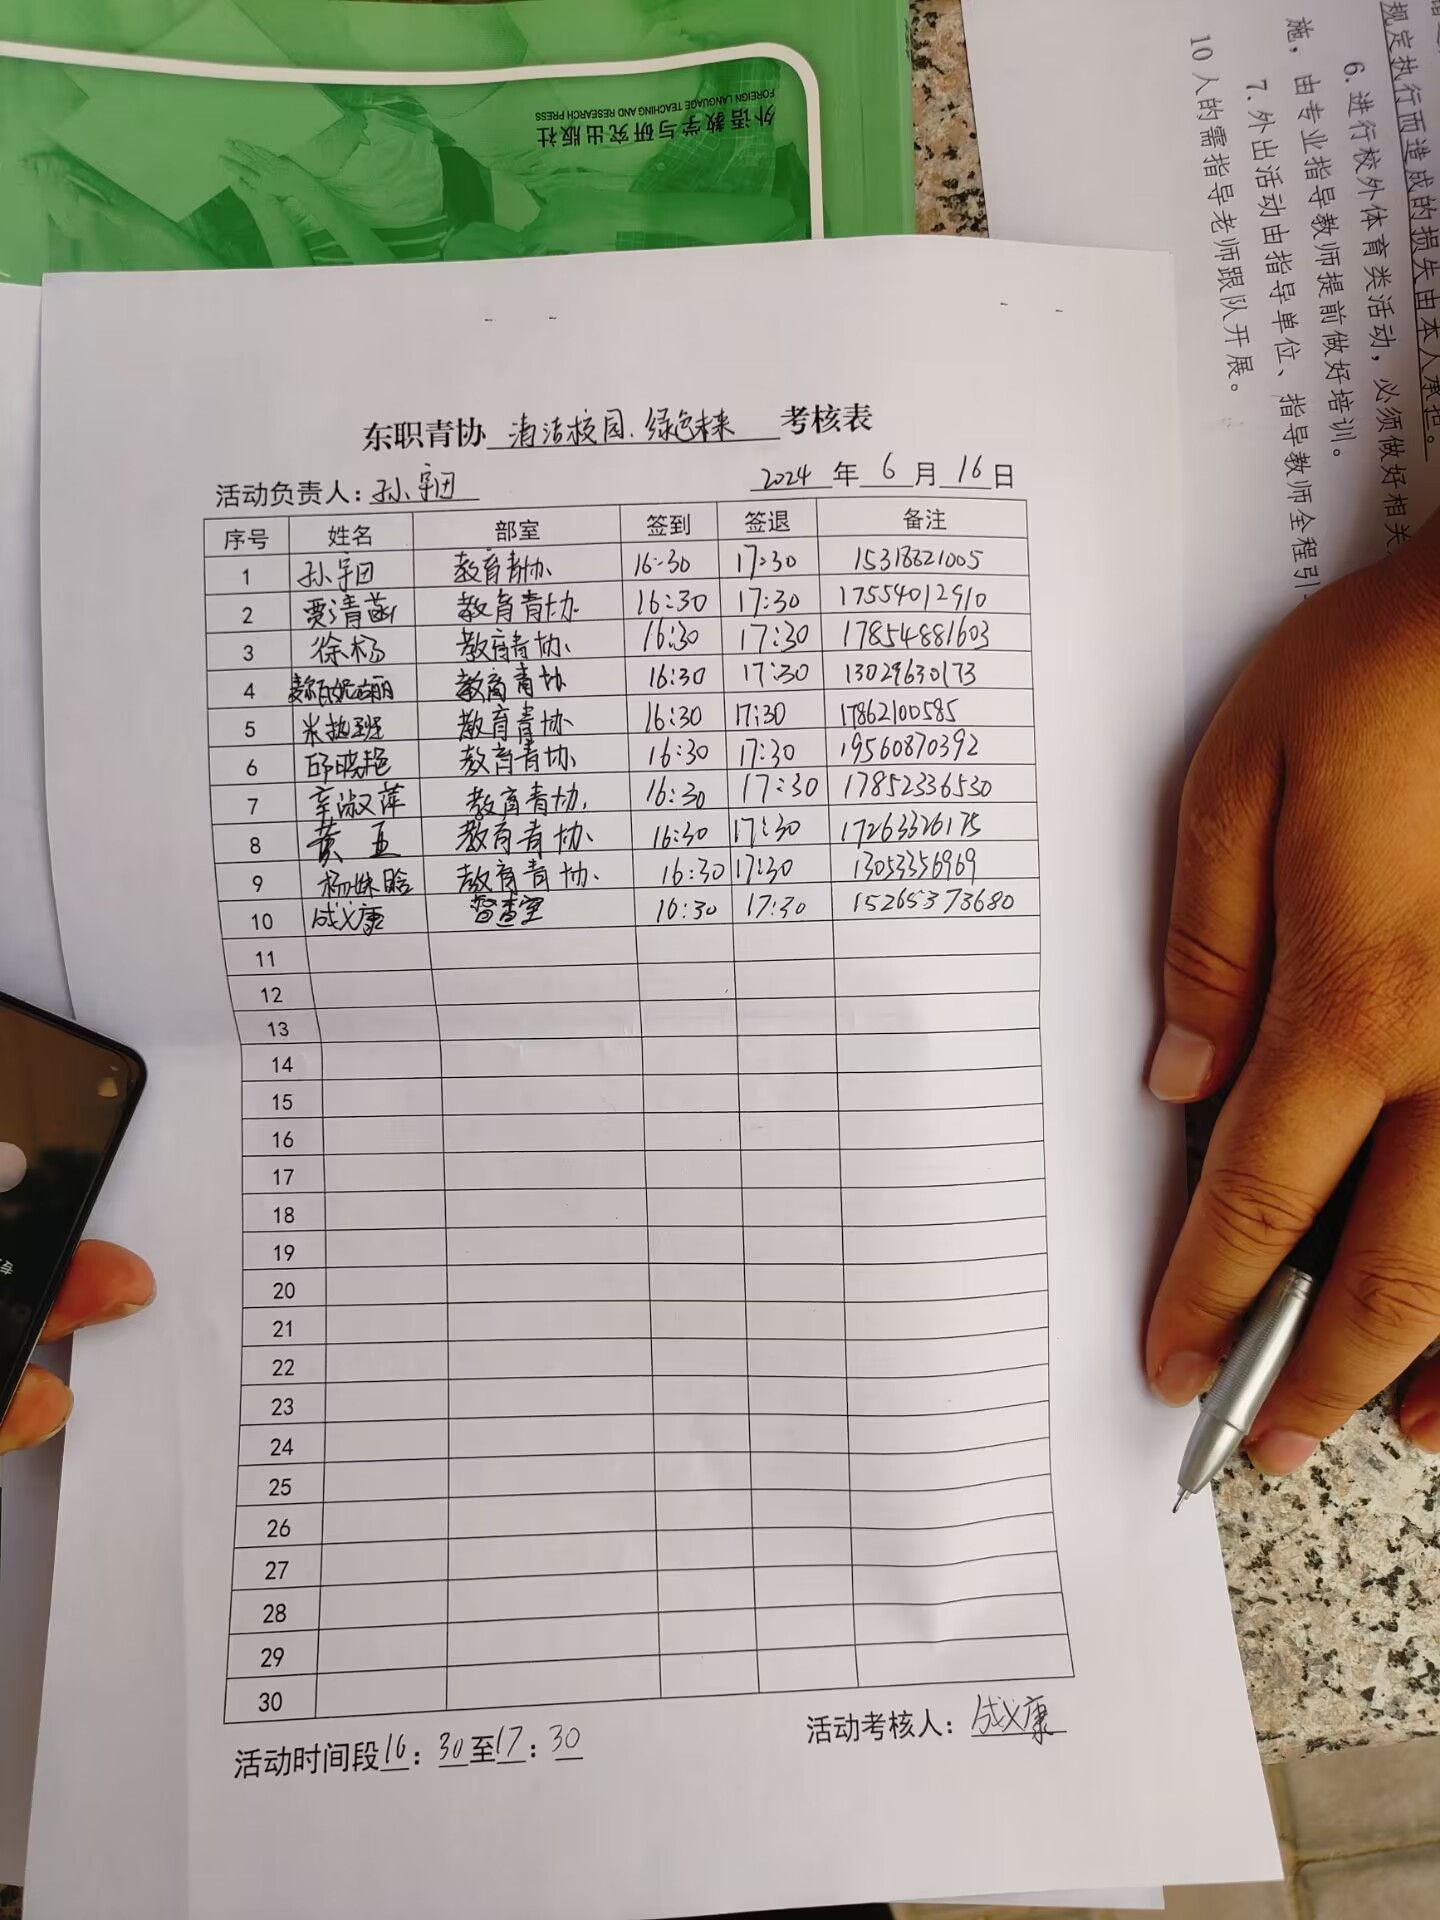 外语教学与研究出版社
FOREIGN LANGUAGE TEACHING AND RESEARCH PRESS
规定执行而造成的损失由本人承担。
6.进行校外体育类活动，必须做好相关
施，由专业指导教师提前做好培训。
7.外出活动由指导单位、指导教师全程引
10人的需指导老师跟队开展。
东职青协 清洁校园.绿色未来 考核表
活动负责人：孙宇团 2024年6月16日
序号 姓名 部室 签到 签退 备注
1 孙宇团 教育青协 16:30 17:30 15318821005
2 贾清菡 教育青协 16:30 17:30 17554012910
3 徐杨 教育青协 16:30 17:30 17854881603
4 教育青协 16:30 17:30 13029630173
5 米热班 教育青协 16:30 17:30 17862100585
6 邱晓艳 教育青协 16:30 17:30 19560870392
7 辛淑萍 教育青协 16:30 17:30 17852336530
8 黄五 教育青协 16:30 17:30 17263326175
9 杨姝晗 教育青协 16:30 17:30 13053356969
10 成义康 督查室 16:30 17:30 15265373680
11
12
13
14
15
16
17
18
19
20
21
22
23
24
25
26
27
28
29
30
活动时间段16：30至17：30 活动考核人：成义康